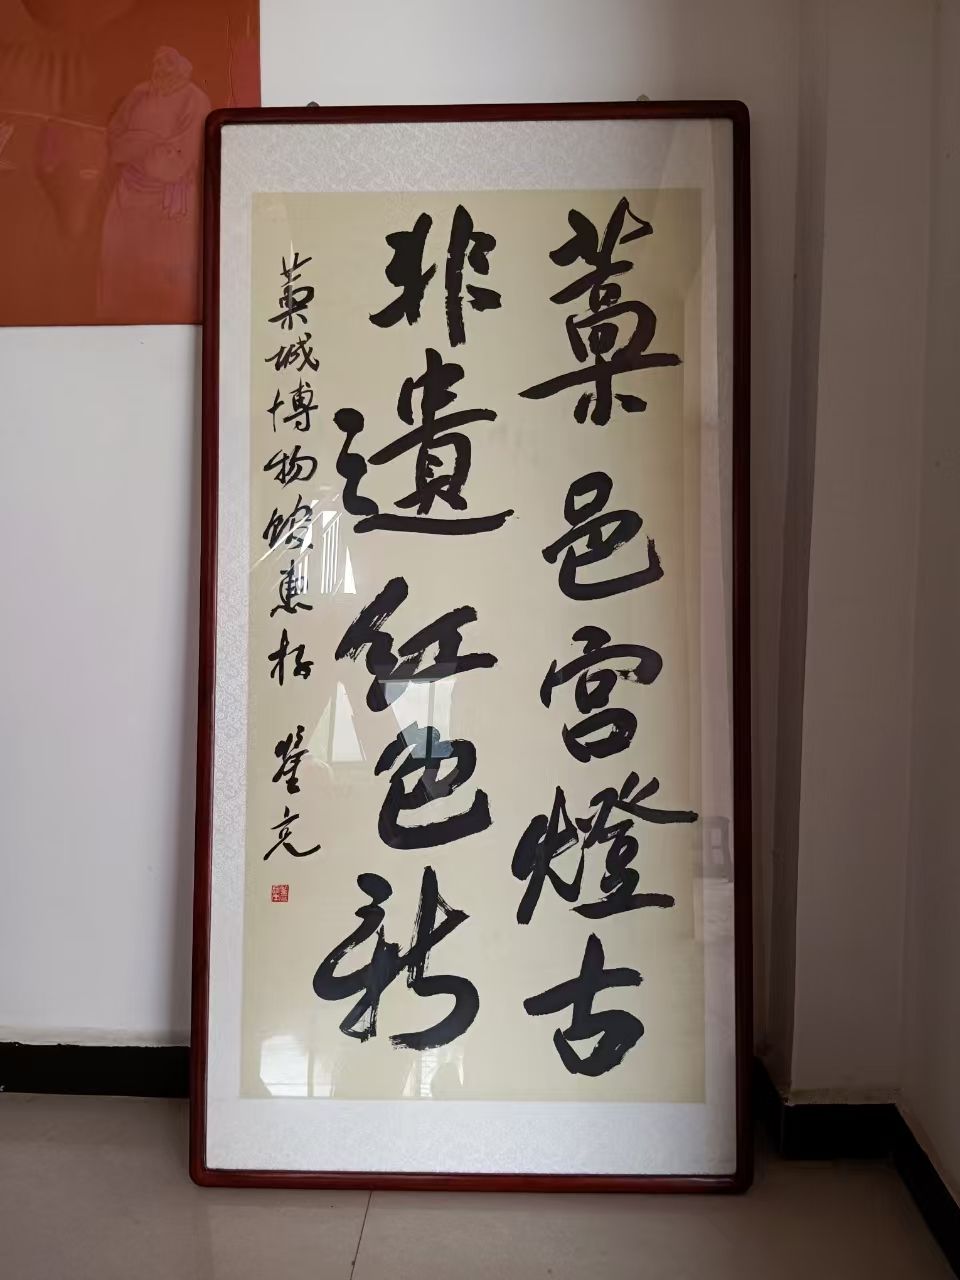 藁邑宫燈古
非遺红色新
藁城博物馆惠存